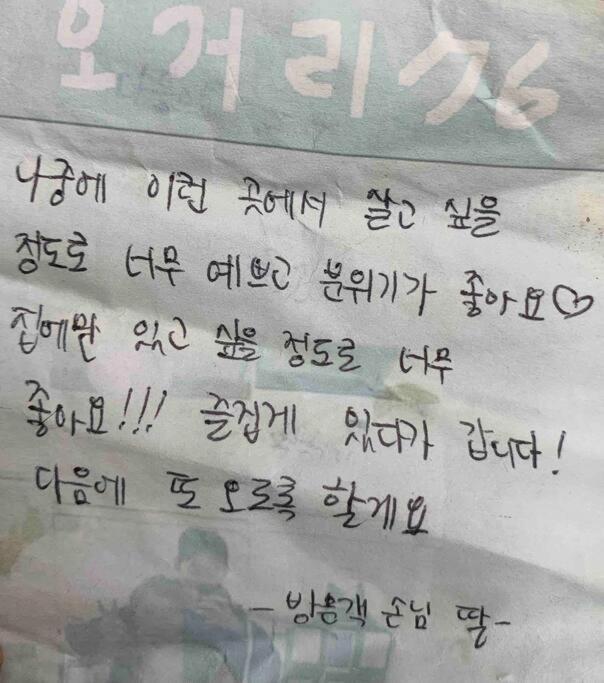 오거리76
나중에 이런 곳에서 살고 싶을
정도로 너무 예쁘고 분위기가 좋아요♡
집에만 있고 싶을 정도로 너무
좋아요!!! 즐겁게 있다가 갑니다!
다음에 또 오로록 할게요
- 방문객 손님 딸-